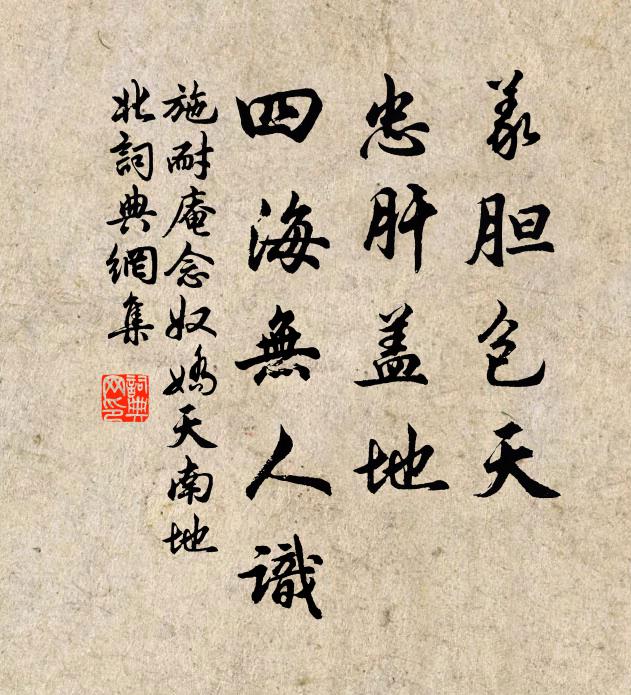 義胆包天
忠肝盖地
四海無人識
施耐庵念奴嬌天南地
北詞典網集
詞典
网印